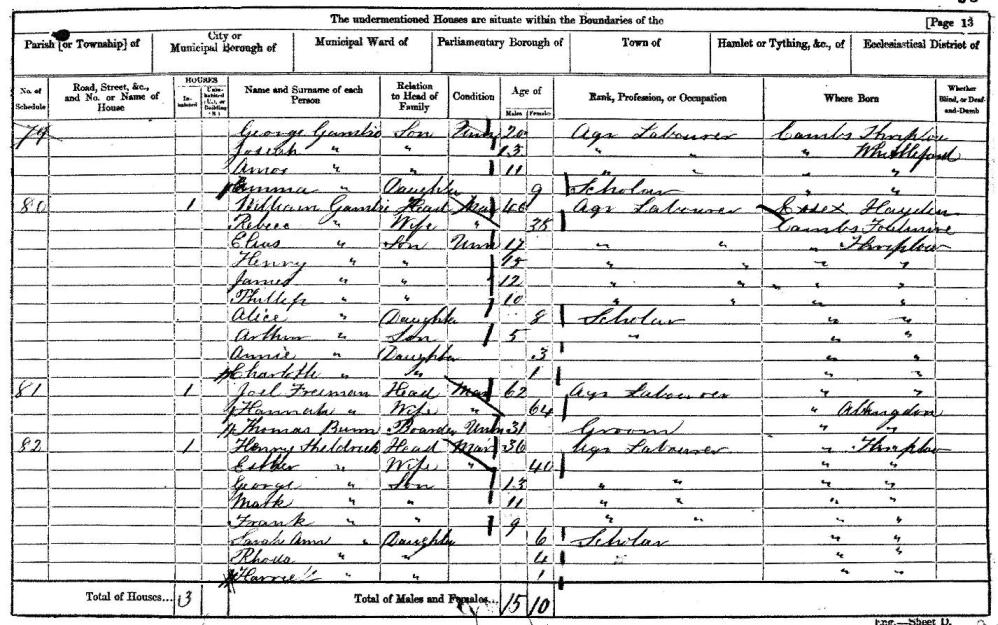 The undermentioned Houses are situate within the Boundaries of the
[Page 13
Parish [or Township] of City or Municipal Borough of Municipal Ward of Parliamentary Borough of Town of Hamlet or Tything, &c., of Ecclesiastical District of
No. of Schedule Road, Street, &c., and No. or Name of House HOUSES Inhabited Uninhabited (U.), or Building (B.) Name and Surname of each Person Relation to Head of Family Condition Age of Males Females Rank, Profession, or Occupation Where Born Whether Blind, or Deaf-and-Dumb
79 George Gambie Son Unm 20 Agr Labourer Cambs Thriplow
Joseph " " 13 " " " Whittlesford
Amos " " 11 " " " "
Emma " Daughter 9 Scholar " "
80 1 William Gambie Head Mar 46 Agr Labourer Essex Haydon
Rebecc " Wife " 38 Cambs Foulmire
Elias " Son Unm 17 " " " Thriplow
Henry " " 15 " " " "
James " " 12 " " " "
Phillip " " 10 " " " "
Alice " Daughter 8 Scholar " "
Arthur " Son 5 " " "
Annie " Daughter 3 " "
Charlotte " " 1 " "
81 1 Joel Freeman Head Mar 62 Agr Labourer " "
Hannah " Wife " 64 " Abingdon
Thomas Bunn Boarder Unm 31 Groom " "
82 1 Henry Sheldrick Head Mar 36 Agr Labourer " Thriplow
Esther " Wife " 40 " "
George " Son 13 " " " "
Mark " " 11 " " " "
Frank " " 9 " " " "
Sarah Ann " Daughter 6 Scholar " "
Rhoda " " 4 " " "
" " 1 " "
Total of Houses... 3 Total of Males and Females... 15 10
Eng.—Sheet D.